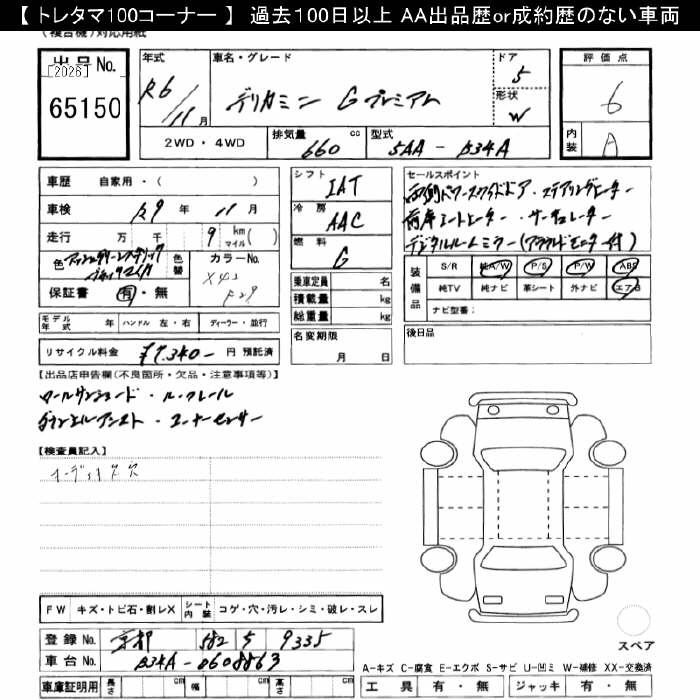 【 トレタマ100コーナー 】 過去100日以上 AA出品歴or成約歴のない車両
(複合機)対応用紙
出品No.
[2026]
65150
年式 R6/11月
車名・グレード
デリカミニ Gプレミアム
ドア 5
形状 W
評価点 6
内装 A
2WD・4WD
排気量 660 cc
型式 5AA - B34A
車歴 自家用・( )
車検 R9年11月
走行 万 千 9 km マイル( )
色
色替
カラーNo.
保証書 有・無
シフト IAT
冷房 AAC
燃料 G
乗車定員 名
積載量 kg
総重量 kg
名変期限 月 日
セールスポイント
両側パワースライドドア・ステアリングヒーター
前席シートヒーター・サーキュレーター
デジタルルームミラー(アラウンドモニター付)
装備品
S/R 純A/W P/S P/W ABS
純TV 純ナビ 革シート 外ナビ エアB
ナビ型番:
後日品
モデル年式 年 ハンドル 左・右 ディーラー・並行
リサイクル料金 ¥7,340- 円 預託済
【出品店申告欄(不良箇所・欠品・注意事項等)】
ロールサンシェード・ルーフレール
ダウンヒルアシスト・コーナーセンサー
【検査員記入】
オーディオレス
FW キズ・トビ石・割レX シート内装 コゲ・穴・汚レ・シミ・破レ・スレ
登録No. 京都 582 9335
車台No. B34A-0608863
車庫証明用 長さ cm 幅 cm 高さ cm
スペア
A-キズ C-腐食 E-エクボ S-サビ U-凹ミ W-補修 XX-交換済
工具 有・無 ジャッキ 有・無